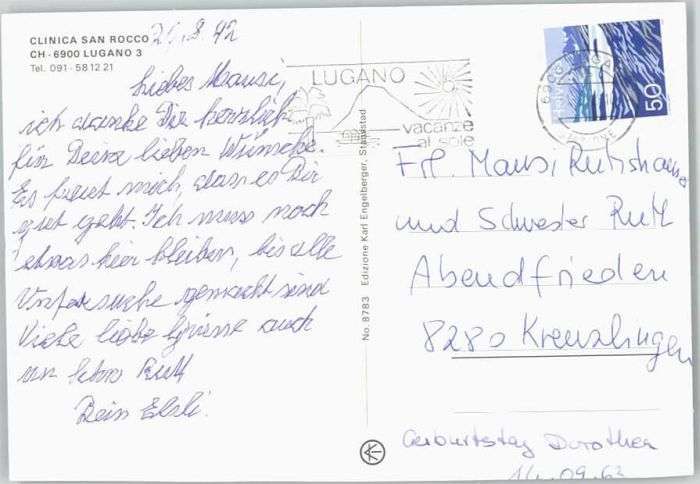 CLINICA SAN ROCCO
CH-6900 LUGANO 3
Tel. 091-58 12 21
8.92
Liebes Mausi,
ich danke Dir herzlich
für Deine lieben Wünsche.
Es freut mich, dass es Dir
gut geht. Ich muss noch
etwas hier bleiben, bis alle
gemacht sind
Viele liebe Grüsse auch
Ruth
Dein
No. 8783 Edizione Karl Engelberger, Stansstad
LUGANO
vacanze
al sole
50
Frl. Mausi
und Schwester Ruth
Abendfrieden
8280 Kreuzlingen
Geburtstag Dorothea
14.09.63